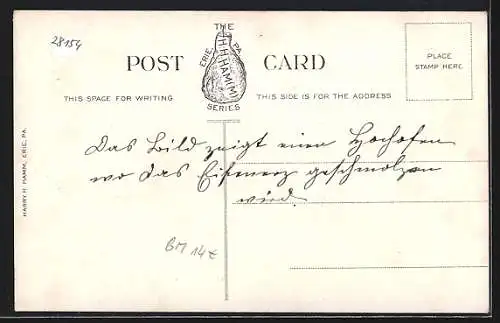 28154
THE
H.H.HAMM
ERIE, PA.
SERIES
POST CARD
PLACE
STAMP HERE
THIS SPACE FOR WRITING
THIS SIDE IS FOR THE ADDRESS
HARRY H. HAMM, ERIE, PA.
Das Bild zeigt einen Hochofen
wo das Eisenerz geschmolzen
wird
BM 14€